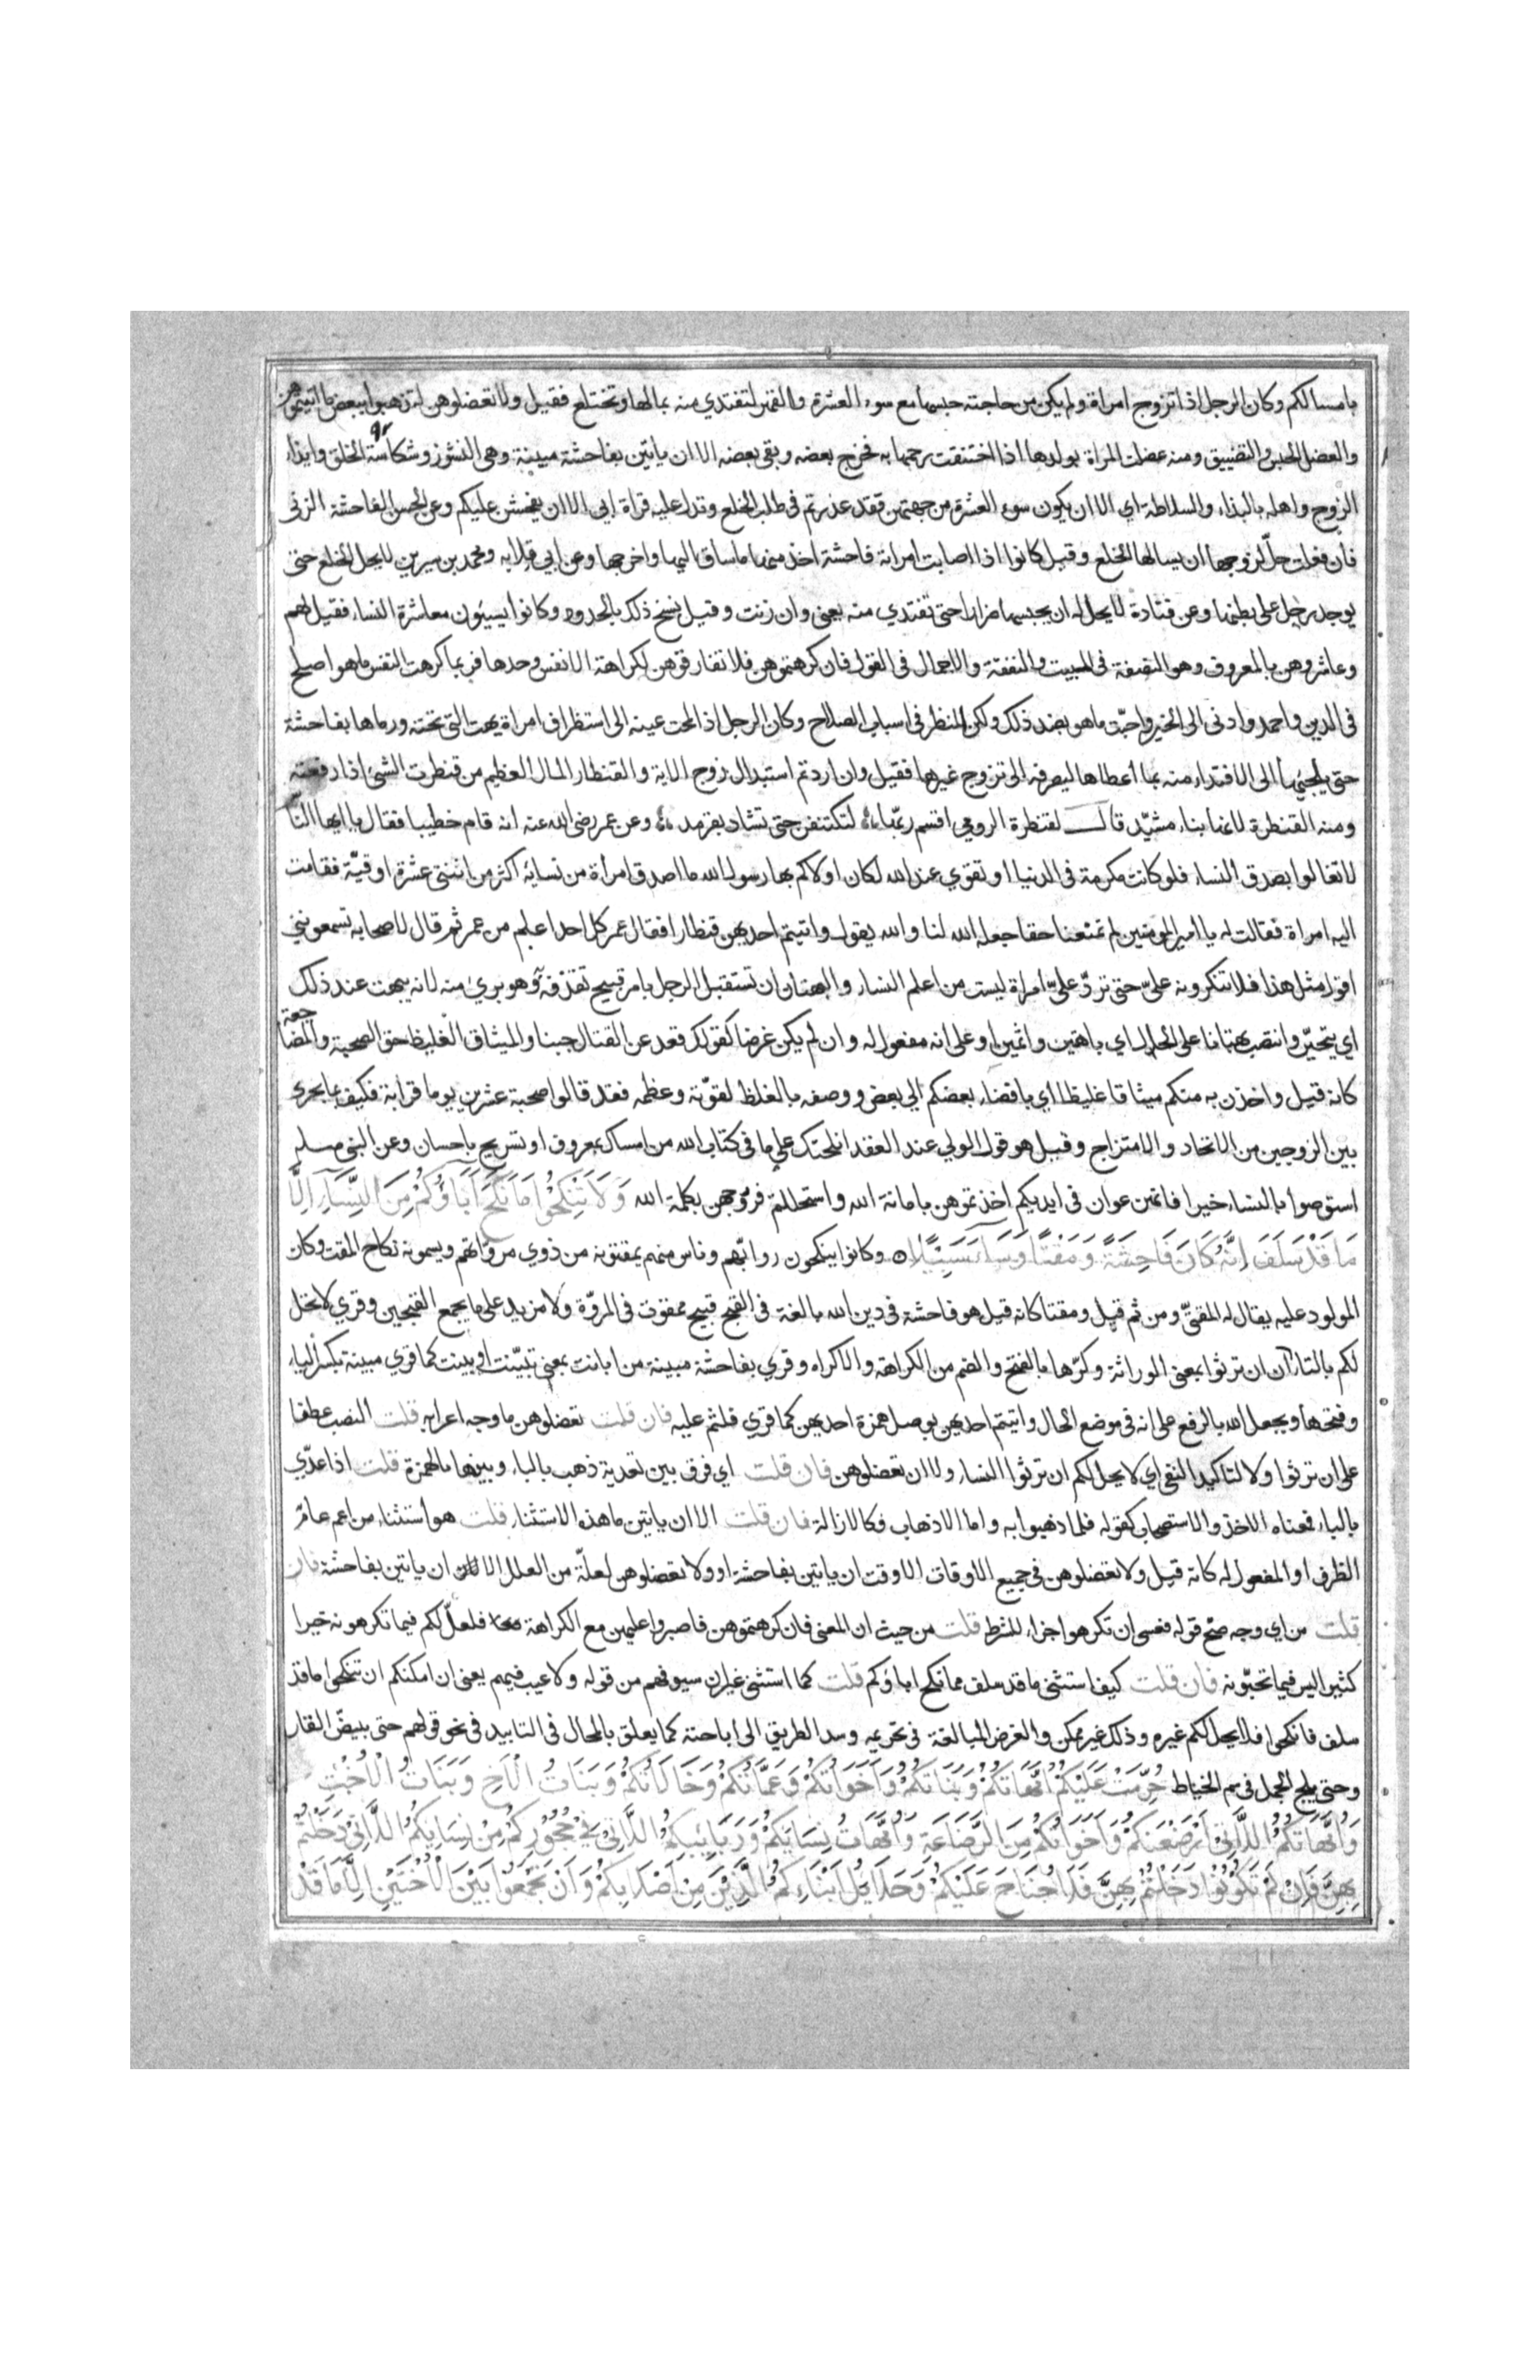 بامساككم وكان الرجل اذا تزوج امراة ولم يكن من حاجته حبسها مع سوء العشرة والقهر لتفتدي منه بمالها وتختلع فقيل ولا تعضلوهن لتذهبوا ببعض ما اتيتموهن
والعضل الحبس والتضييق ومنه عضلت المراة بولدها اذا اختنقت رحمها به فخرج بعضه وبقي بعضه الا ان ياتين بفاحشة مبينة وهي النشوز وشكاسة الخلق وايذاء
الزوج واهله بالبذاء والسلاطة اي الا ان يكون سوء العشرة من جهتهن فقد عذرتم في طلب الخلع وتدل عليه قراة ابي الا ان يفحشن عليكم وعن الحسن الفاحشة الزنى
فان فعلت حلّ لزوجها ان يسالها الخلع وقيل كانوا اذا اصابت امراته فاحشة اخذ منها ما ساق اليها واخرجها وعن ابي قلابه ومحمد بن سيرين لا يحل الخلع حتى
يوجد رجل على بطنها وعن قتادة لا يحل له ان يحبسها ضرارا حتى تفتدي منه يعني وان زنت وقيل نسخ ذلك بالحدود وكانوا يسيئون معاشرة النساء فقيل لهم
وعاشروهن بالمعروف وهو النصفة في المبيت والنفقة والاجمال في القول فان كرهتموهن فلا تفارقوهن لكراهة الانفس وحدها فربما كرهت النفس ما هو اصلح
في الدين واحمد وادنى الى الخير واحبّت ما هو بضد ذلك ولكن النظر في اسباب الصلاح وكان الرجل اذا طمحت عينه الى استطراف امراة بهت التي تحته ورماها بفاحشة
حتى يلجئها الى الافتداء منه بما اعطاها ليصرفه الى تزوج غيرها فقيل وان اردتم استبدال زوج الاية والقنطار المال العظيم من قنطرت الشئ اذا رفعته
ومنه القنطرة لانها بناء مشيّد قال لقنطرة الرومي اقسم ربّها لتكتنفن حتى تشاد بقرمد وعن عمر رضي الله عنه انه قام خطيبا فقال يا ايها الناس
لا تغالوا بصدق النساء فلو كانت مكرمة في الدنيا او تقوي عند الله لكان اولاكم بها رسول الله ما اصدق امراة من نسائه اكثر من اثنتي عشرة اوقيّة فقامت
اليه امراة فقالت له يا امير المومنين لم تمنعنا حقا جعله الله لنا والله يقول واتيتم احديهن قنطارا فقال عمر كل احد اعلم من عمر ثم قال لاصحابه تسمعونني
اقول مثل هذا فلا تنكرونه عليّ حتى تردّ عليّ امراة ليست من اعلم النساء والبهتان ان تستقبل الرجل بامر قبيح تقذفه به وهو بريئ منه لانه يبهت عند ذلك
اي يتحيّر وانتصب بهتانا على الحال اي باهتين واثمين او على انه مفعول له وان لم يكن غرضا كقولك قعد عن القتال جبنا والميثاق الغليظ حق الصحبة والمضاجعة
كانه قيل واخذن به منكم ميثاقا غليظا اي بافضاء بعضكم الي بعض ووصفه بالغلظ لقوّته وعظمه فقد قالوا صحبة عشرين يوما قرابة فكيف بما يجرى
بين الزوجين من الاتحاد والامتزاج وقيل هو قول الولي عند العقد انكحتك على ما في كتاب الله من امساك بمعروف او تسريح باحسان وعن النبي صلعم
استوصوا بالنساء خيرا فانهن عوان في ايديكم اخذتموهن بامانة الله واستحللتم فروجهن بكلمة الله وَلَا تَنْكِحُوا مَا نَكَحَ اٰبَاؤُكُمْ مِنَ النِّسَاءِ اِلَّا
مَا قَدْ سَلَفَ اِنَّهُ كَانَ فَاحِشَةً وَمَقْتًا وَسَاءَ سَبِيْلًا وكانوا ينكحون روابّهم وناس منهم يمقتونه من ذوي مروّاتهم ويسمونه نكاح المقت وكان
المولود عليه يقال له المقتيّ ومن ثم قيل ومقتا كانه قيل هو فاحشة في دين الله بالغة في القبح قبيح ممقوت في المروّة ولا مزيد على ما يجمع القبحين وقري لا تحل
لكم بالتاء ان ان ترثوا بمعنى الوراثة وكرها بالفتح والضم من الكراهة والاكراه وقري بفاحشة مبينة من ابانت بمعنى تبيّنت او بينت كما قري مبينة بكسر الياء
وفتحها ويجعل الله بالرفع على انه في موضع الحال واتيتم احديهن بوصل همزة احديهن كما قري فلثم عليه فان قلت تعضلوهن ما وجه اعرابه قلت النصب عطفا
على ان ترثوا ولا لتاكيد النفي اي لا يحل لكم ان ترثوا النساء ولا ان تعضلوهن فان قلت اي فرق بين تعدية ذهب بالباء وبينها بالهمزة قلت اذا عدّي
بالباء فمعناه الاخذ والاستصحاب كقوله فلما ذهبوا به واما الاذهاب فكالازالة فان قلت الا ان ياتين ما هذه الاستثناء قلت هو استثناء من اعم عامّ
الظرف او المفعول له كانه قيل ولا تعضلوهن في جميع الاوقات الا وقت ان ياتين بفاحشة او ولا تعضلوهن لعلّة من العلل الا لان ان ياتين بفاحشة فان
قلت من اي وجه صح قوله فعسى ان تكرهوا جزاء للشرط قلت من حيث ان المعنى فان كرهتموهن فاصبروا عليهن مع الكراهة فلعلّ لكم فيما تكرهونه خيرا
كثيرا ليس فيما تحبّونه فان قلت كيف استثنى ما قد سلف مما نكح اباؤكم قلت كما استثنى غير ان سيوفهم من قوله ولا عيب فيهم يعني ان امكنكم ان تنكحوا ما قد
سلف فانكحوا فلا يحل لكم غيره وذلك غير ممكن والغرض المبالغة في تحريمه وسد الطريق الى اباحته كما يعلق بالمحال في التابيد في نحو قولهم حتى يبيضّ القار
وحتى يلج الجمل في سم الخياط حُرِّمَتْ عَلَيْكُمْ اُمَّهَاتُكُمْ وَبَنَاتُكُمْ وَاَخَوَاتُكُمْ وَعَمَّاتُكُمْ وَخَالَاتُكُمْ وَبَنَاتُ الْاَخِ وَبَنَاتُ الْاُخْتِ
وَاُمَّهَاتُكُمُ اللَّاتِيْ اَرْضَعْنَكُمْ وَاَخَوَاتُكُمْ مِنَ الرَّضَاعَةِ وَاُمَّهَاتُ نِسَائِكُمْ وَرَبَائِبُكُمُ اللَّاتِيْ فِيْ حُجُوْرِكُمْ مِنْ نِسَائِكُمُ اللَّاتِيْ دَخَلْتُمْ
بِهِنَّ فَاِنْ لَمْ تَكُوْنُوْا دَخَلْتُمْ بِهِنَّ فَلَا جُنَاحَ عَلَيْكُمْ وَحَلَائِلُ اَبْنَاءِكُمُ الَّذِيْنَ مِنْ اَصْلَابِكُمْ وَاَنْ تَجْمَعُوْا بَيْنَ الْاُخْتَيْنِ اِلَّا مَا قَدْ